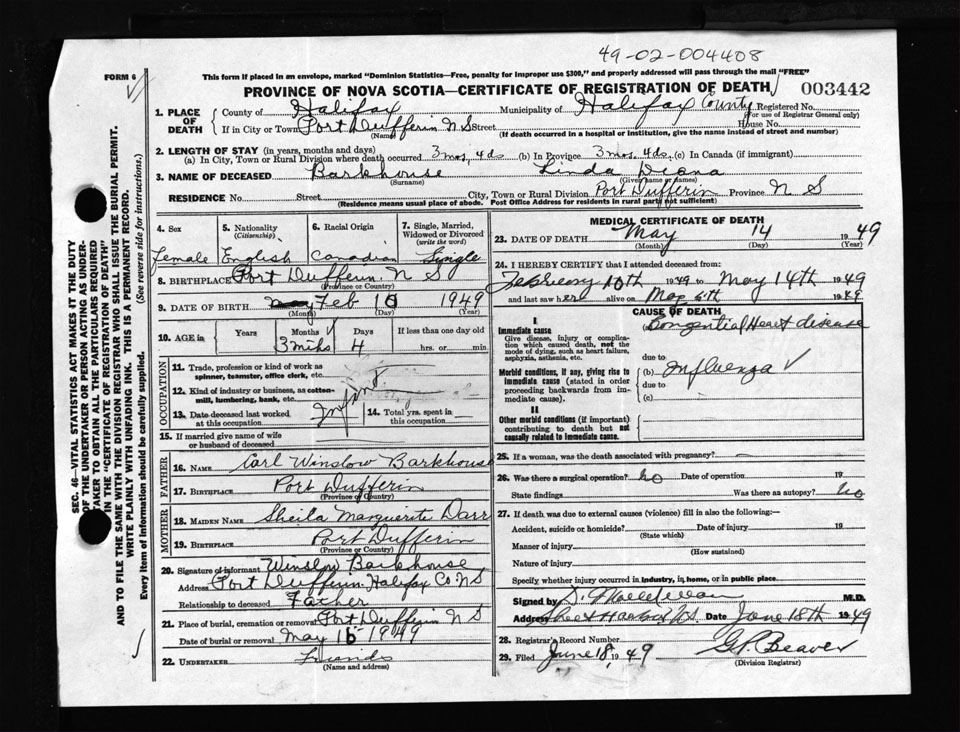 49-02-004408
FORM 6
This form if placed in an envelope, marked "Dominion Statistics—Free, penalty for improper use $300," and properly addressed will pass through the mail "FREE"
PROVINCE OF NOVA SCOTIA—CERTIFICATE OF REGISTRATION OF DEATH 003442
1. PLACE OF DEATH
County of Halifax Municipality of Halifax County Registered No.
(For use of Registrar General only)
If in City or Town Port Dufferin N S Street House No.
(Name) (If death occurred in a hospital or institution, give the name instead of street and number)
2. LENGTH OF STAY (in years, months and days)
(a) In City, Town or Rural Division where death occurred 3 mos, 4 ds (b) In Province 3 mos. 4 ds. (c) In Canada (if immigrant)
3. NAME OF DECEASED Barkhouse Linda Diana
(Surname) (Given name or names)
RESIDENCE No. Street City, Town or Rural Division Port Dufferin Province N S
(Residence means usual place of abode. Post Office Address for residents in rural parts not sufficient)
4. Sex 5. Nationality (Citizenship) 6. Racial Origin 7. Single, Married, Widowed or Divorced (write the word)
Female English Canadian Single
8. BIRTHPLACE Port Dufferin N S
(Province or Country)
9. DATE OF BIRTH May Feb 10 1949
(Month) (Day) (Year)
10. AGE in Years Months Days If less than one day old
3 4 hrs. or min.
OCCUPATION
11. Trade, profession or kind of work as spinner, teamster, office clerk, etc.
12. Kind of industry or business, as cotton-mill, lumbering, bank, etc.
Infant
13. Date deceased last worked at this occupation 14. Total yrs. spent in this occupation
15. If married give name of wife or husband of deceased
FATHER
16. NAME Carl Winslow Barkhouse
17. BIRTHPLACE Port Dufferin
(Province or Country)
MOTHER
18. MAIDEN NAME Sheila Marguerite Darr
19. BIRTHPLACE Port Dufferin
(Province or Country)
20. Signature of informant Winslow Barkhouse
Address Port Dufferin Halifax Co NS
Relationship to deceased Father
21. Place of burial, cremation or removal Port Dufferin N S
Date of burial or removal May 16 1949
22. UNDERTAKER Friends
(Name and address)
MEDICAL CERTIFICATE OF DEATH
23. DATE OF DEATH May 14 1949
(Month) (Day) (Year)
24. I HEREBY CERTIFY that I attended deceased from:
February 10th 1949 to May 14th 1949
and last saw her alive on May 1949
CAUSE OF DEATH
I.
Immediate cause
Give disease, injury or complication which caused death, not the mode of dying, such as heart failure, asphyxia, asthenia, etc.
Congential Heart disease
due to
Morbid conditions, if any, giving rise to immediate cause (stated in order proceeding backwards from immediate cause).
(b) Influenza
due to
(c)
II
Other morbid conditions (if important) contributing to death but not causally related to immediate cause.
25. If a woman, was the death associated with pregnancy?
26. Was there a surgical operation? No Date of operation 19
State findings Was there an autopsy? No
27. If death was due to external causes (violence) fill in also the following:—
Accident, suicide or homicide? Date of injury 19
(State which)
Manner of injury
(How sustained)
Nature of injury
Specify whether injury occurred in industry, in home, or in public place
Signed by M.D.
Address Sheet Harbor N.S. Date June 18th 1949
28. Registrar's Record Number
29. Filed June 18 1949 G.P. Beaver
(Division Registrar)
SEC. 46—VITAL STATISTICS ACT MAKES IT THE DUTY
OF THE UNDERTAKER OR PERSON ACTING AS UNDER-
TAKER TO OBTAIN ALL THE PARTICULARS REQUIRED
IN THE "CERTIFICATE OF REGISTRATION OF DEATH"
AND TO FILE THE SAME WITH THE DIVISION REGISTRAR WHO SHALL ISSUE THE BURIAL PERMIT.
WRITE PLAINLY WITH UNFADING INK. THIS IS A PERMANENT RECORD.
Every item of information should be carefully supplied. (See reverse side for instructions.)